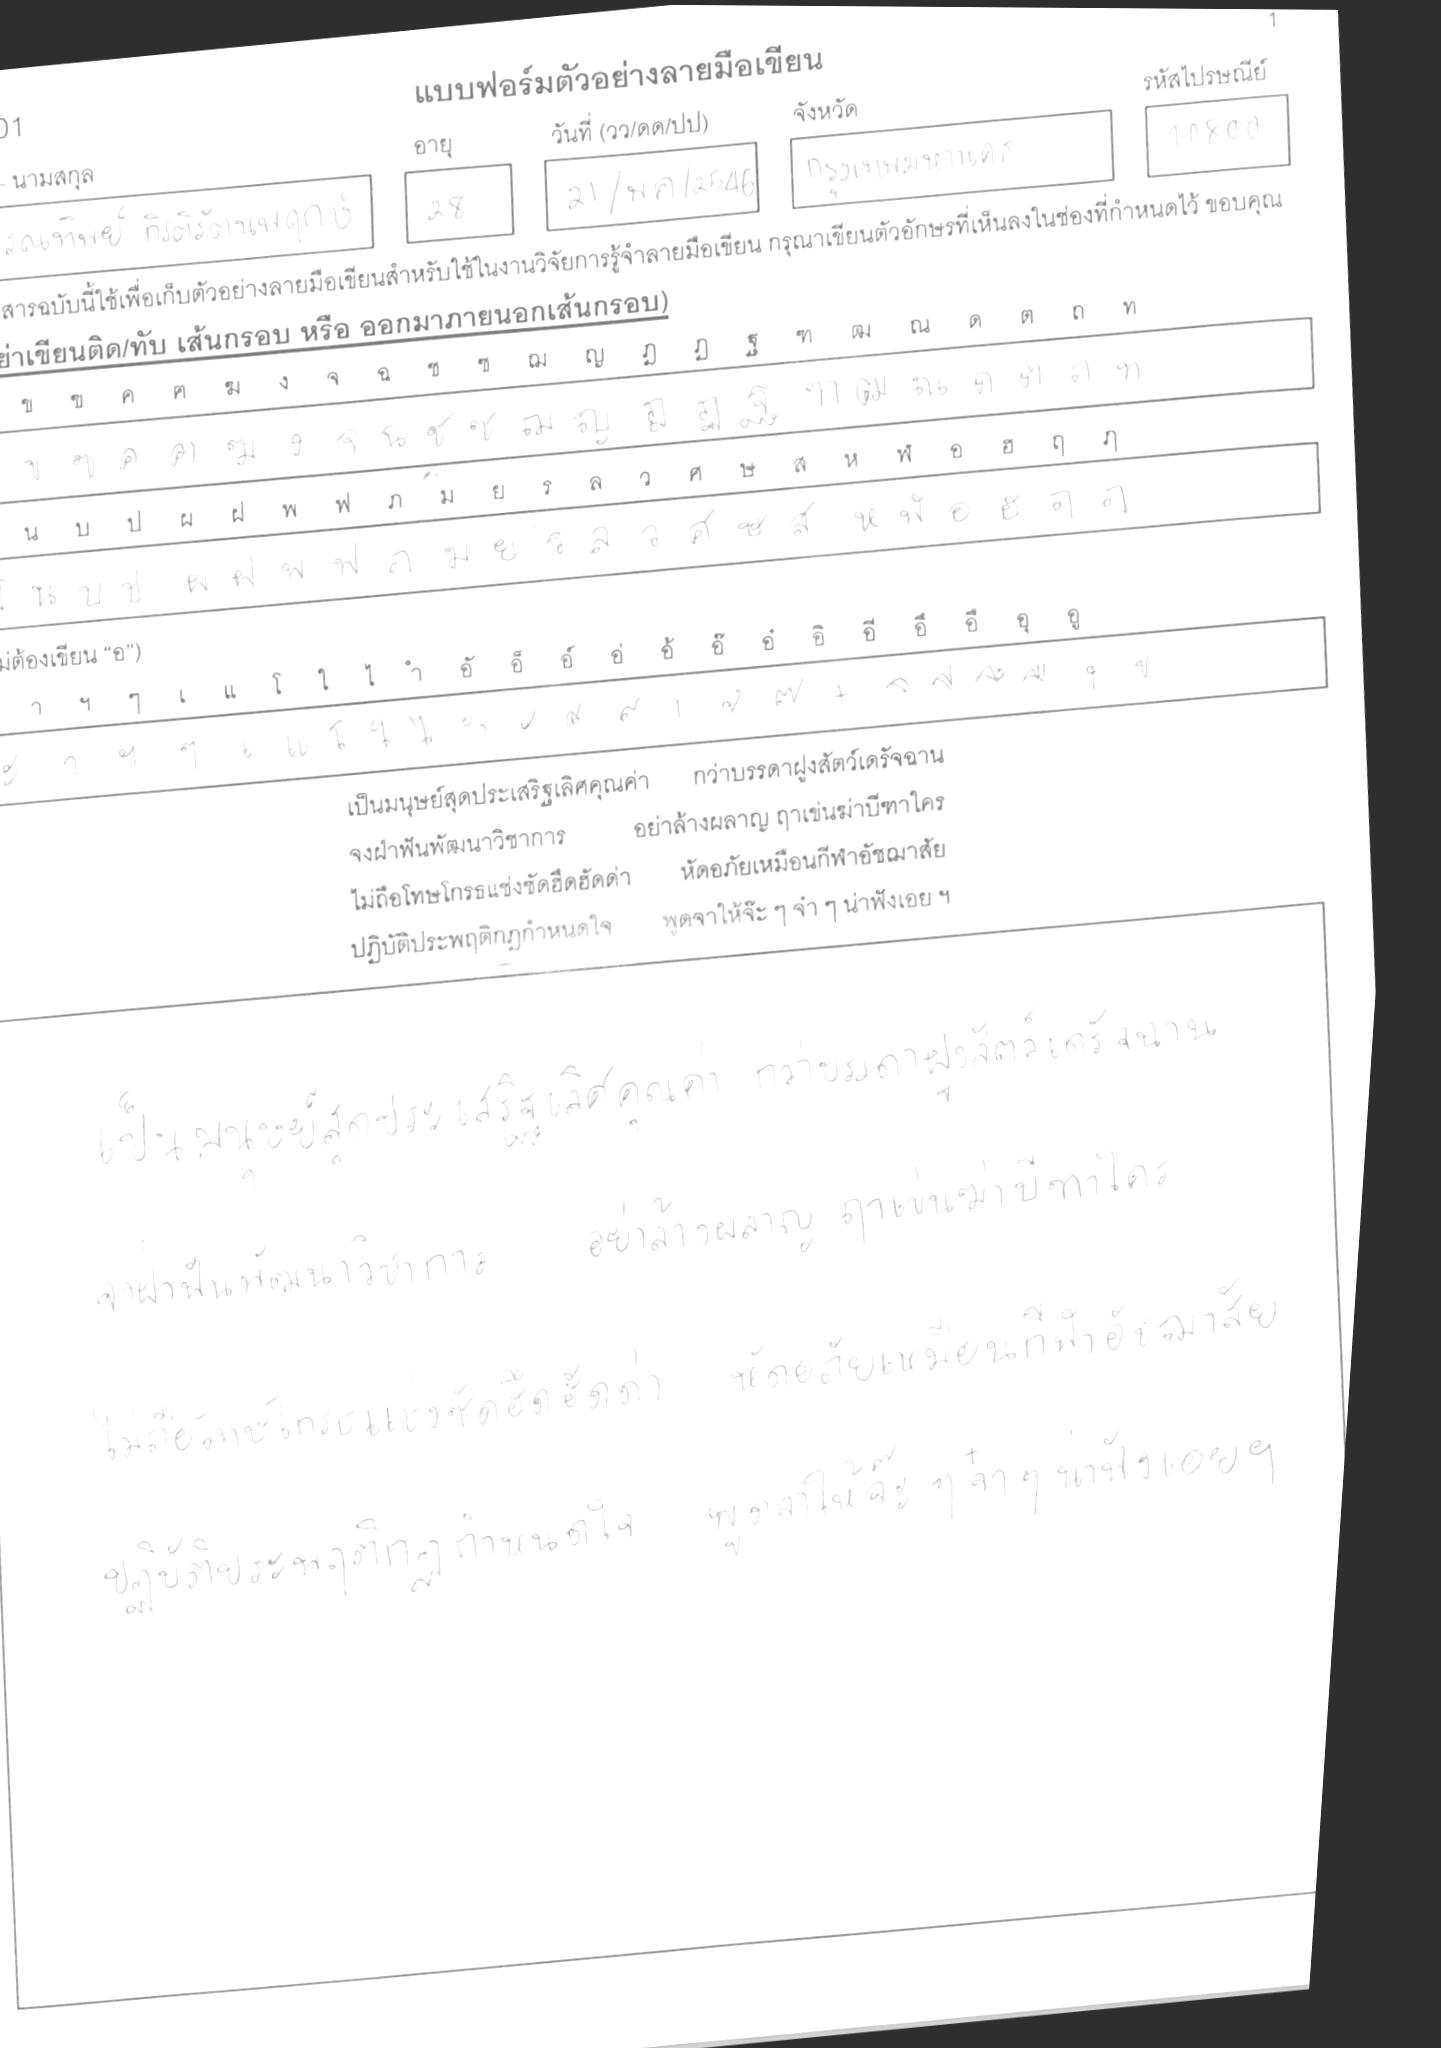 1
แบบฟอร์มตัวอย่างลายมือเขียน
01
นามสกุล อายุ วันที่ (วว/ดด/ปป) จังหวัด รหัสไปรษณีย์
28 21/พค/2546 กรุงเทพมหานคร 10800
สารฉบับนี้ใช้เพื่อเก็บตัวอย่างลายมือเขียนสำหรับใช้ในงานวิจัยการรู้จำลายมือเขียน กรุณาเขียนตัวอักษรที่เห็นลงในช่องที่กำหนดไว้ ขอบคุณ
ย่าเขียนติด/ทับ เส้นกรอบ หรือ ออกมาภายนอกเส้นกรอบ)
ข ฃ ค ฅ ฆ ง จ ฉ ช ซ ฌ ญ ฎ ฏ ฐ ฑ ฒ ณ ด ต ถ ท
ข ฃ ค ฅ ฆ ง จ ฉ ช ซ ฌ ญ ฎ ฏ ฐ ฑ ฒ ณ ด ต ถ ท
น บ ป ผ ฝ พ ฟ ภ ม ย ร ล ว ศ ษ ส ห ฬ อ ฮ ฤ ฦ
น บ ป ผ ฝ พ ฟ ภ ม ย ร ล ว ศ ษ ส ห ฬ อ ฮ ฤ ฦ
ม่ต้องเขียน “อ”)
า ฯ ๆ เ แ โ ใ ไ ำ อั อ็ อ์ อ่ อ้ อ๊ อ๋ อิ อี อึ อื อุ อู
ะ า ฯ ๆ เ แ โ ใ ไ ำ ั ็ ์ ่ ้ ๊ ๋ ิ ี ึ ื ุ ู
เป็นมนุษย์สุดประเสริฐเลิศคุณค่า กว่าบรรดาฝูงสัตว์เดรัจฉาน
จงฝ่าฟันพัฒนาวิชาการ อย่าล้างผลาญ ฤาเข่นฆ่าบีฑาใคร
ไม่ถือโทษโกรธแช่งซัดฮึดฮัดด่า หัดอภัยเหมือนกีฬาอัชฌาสัย
ปฏิบัติประพฤติกฎกำหนดใจ พูดจาให้จ๊ะ ๆ จ๋า ๆ น่าฟังเอย ฯ
เป็นมนุษย์สุดประเสริฐเลิศคุณค่า กว่าบรรดาฝูงสัตว์เดรัจฉาน
จงฝ่าฟันพัฒนาวิชาการ อย่าล้างผลาญ ฤาเข่นฆ่าบีฑาใคร
ไม่ถือโทษโกรธแช่งซัดฮึดฮัดด่า หัดอภัยเหมือนกีฬาอัชฌาสัย
ปฏิบัติประพฤติกฎกำหนดใจ พูดจาให้จ๊ะ ๆ จ๋า ๆ น่าฟังเอยฯ